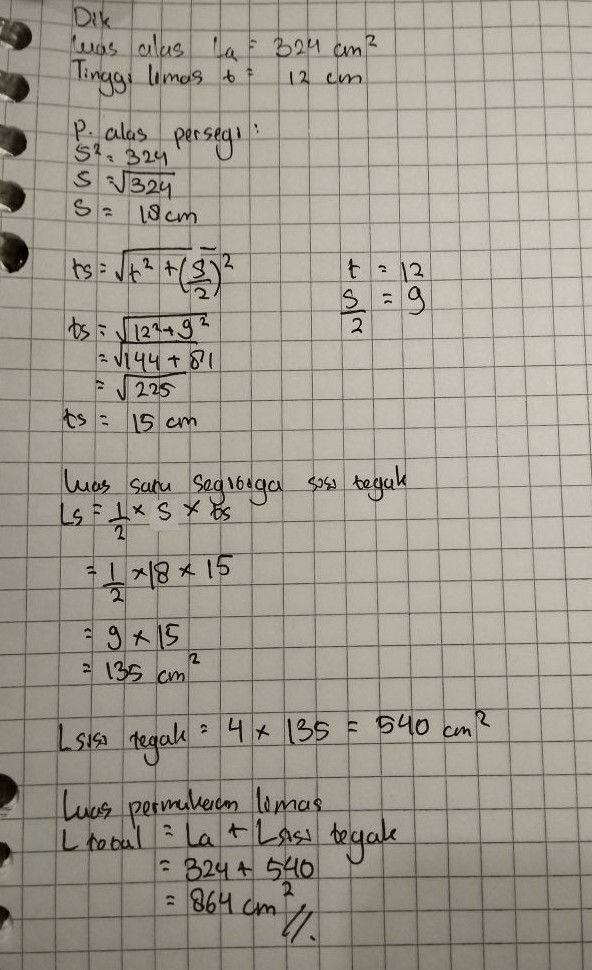 Dik
Luas alas La = 324 cm²
Tinggi limas t = 12 cm
P. alas persegi :
S² = 324
S = √324
S = 18 cm
ts = √t² + (S/2)²
t = 12
S/2 = 9
ts = √12² + 9²
= √144 + 81
= √225
ts = 15 cm
Luas satu segitiga sisi tegak
Ls = 1/2 × S × ts
= 1/2 × 18 × 15
= 9 × 15
= 135 cm²
Lsisi tegak = 4 × 135 = 540 cm²
Luas permukaan limas
L total = La + Lsisi tegak
= 324 + 540
= 864 cm² //.